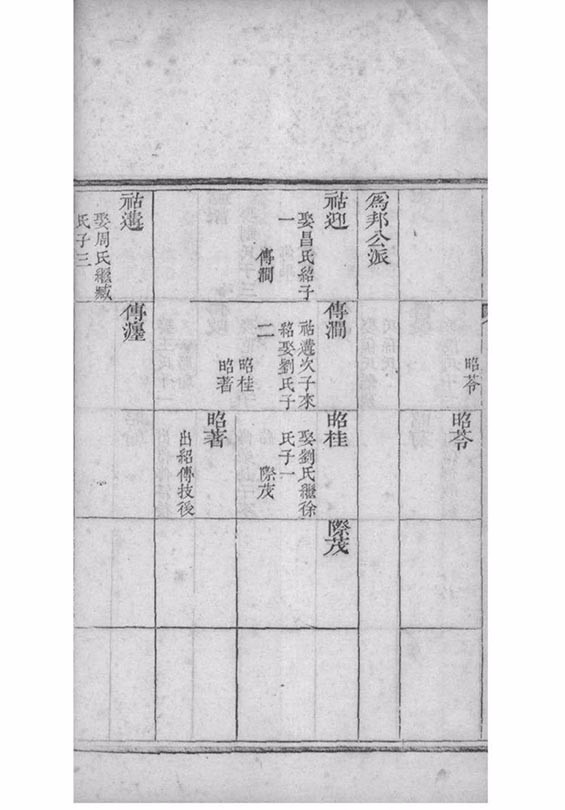 昭苓
昭苓
爲邦公派
祜迎
娶昌氏紹子
一
傳澗
傳澗
祜遺次子來
紹娶劉氏子
二
昭桂
昭著
昭桂
娶劉氏繼徐
氏子一
際茂
際茂
昭著
出紹傳技後
祜遺
娶周氏繼臧
氏子三